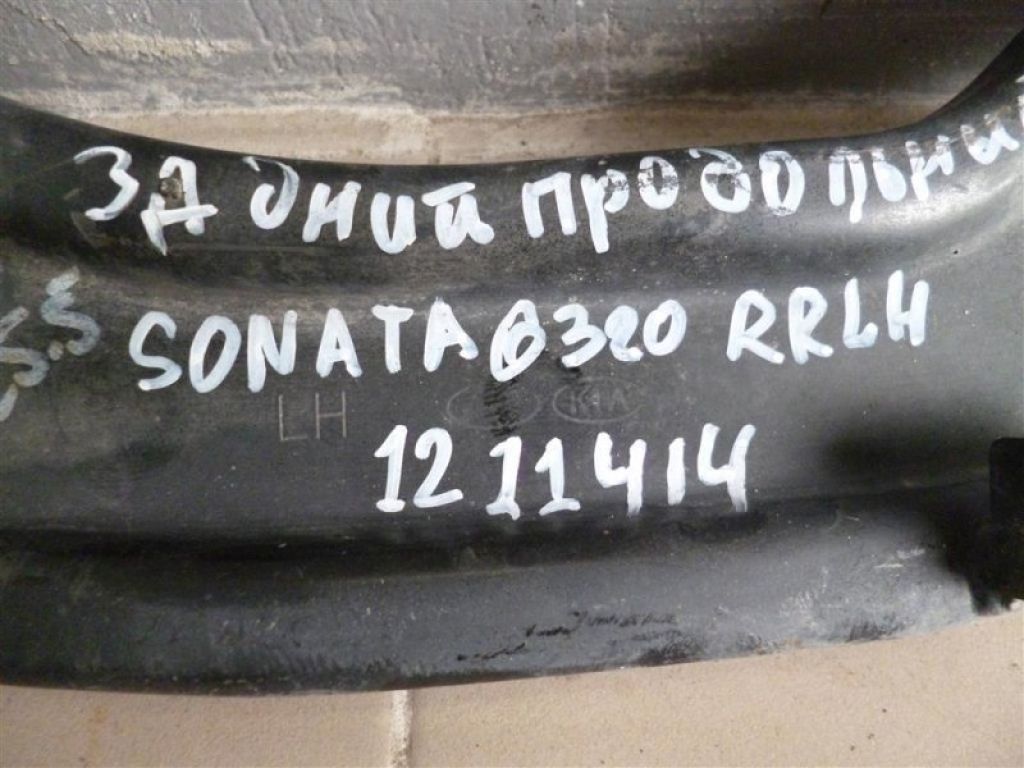 ЗАДНИЙ ПРОДОЛЬНЫ
SONATA 6 320 RRLH
LH KIA
12 11414